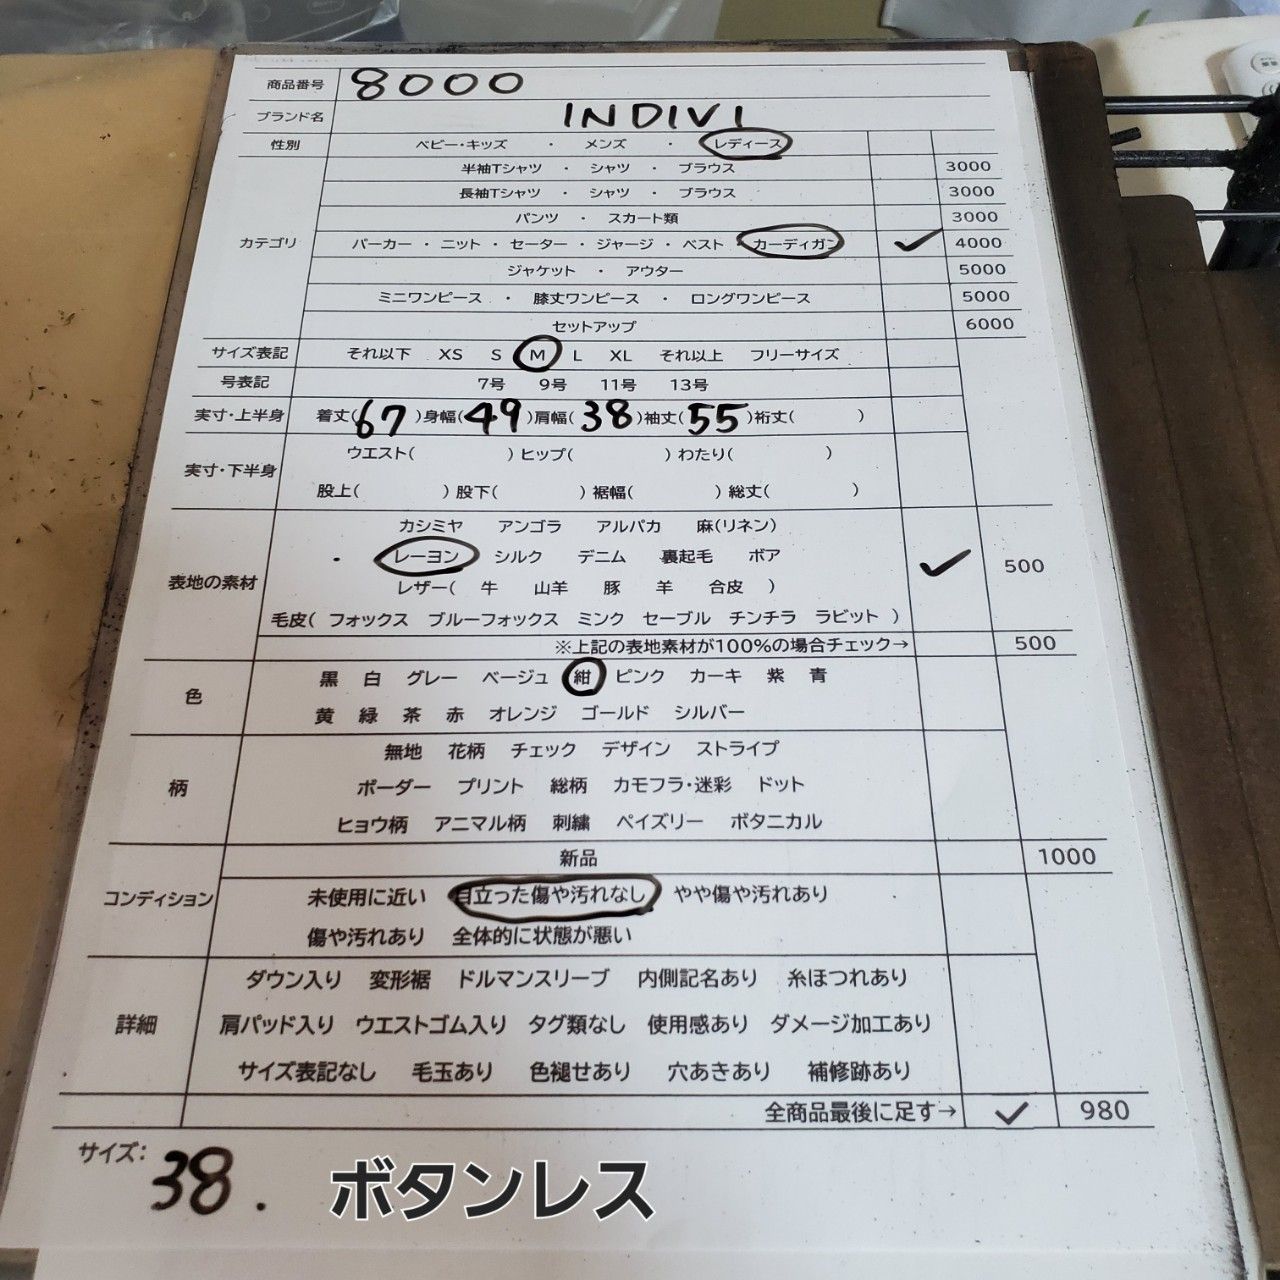 商品番号 8000
ブランド名 INDIVI
性別 ベビー・キッズ ・ メンズ ・ レディース
半袖Tシャツ ・ シャツ ・ ブラウス 3000
長袖Tシャツ ・ シャツ ・ ブラウス 3000
パンツ ・ スカート類 3000
カテゴリ パーカー ・ ニット ・ セーター ・ ジャージ ・ ベスト ・ カーディガン ✓ 4000
ジャケット ・ アウター 5000
ミニワンピース ・ 膝丈ワンピース ・ ロングワンピース 5000
セットアップ 6000
サイズ表記 それ以下 XS S M L XL それ以上 フリーサイズ
号表記 7号 9号 11号 13号
実寸・上半身 着丈(67)身幅(49)肩幅(38)袖丈(55)裄丈( )
実寸・下半身 ウエスト( )ヒップ( )わたり( )
股上( )股下( )裾幅( )総丈( )
カシミヤ アンゴラ アルパカ 麻(リネン)
・ レーヨン シルク デニム 裏起毛 ボア ✓ 500
表地の素材 レザー( 牛 山羊 豚 羊 合皮 )
毛皮( フォックス ブルーフォックス ミンク セーブル チンチラ ラビット )
※上記の表地素材が100%の場合チェック→ 500
色 黒 白 グレー ベージュ 紺 ピンク カーキ 紫 青
黄 緑 茶 赤 オレンジ ゴールド シルバー
無地 花柄 チェック デザイン ストライプ
柄 ボーダー プリント 総柄 カモフラ・迷彩 ドット
ヒョウ柄 アニマル柄 刺繍 ペイズリー ボタニカル
新品 1000
コンディション 未使用に近い 目立った傷や汚れなし やや傷や汚れあり
傷や汚れあり 全体的に状態が悪い
ダウン入り 変形裾 ドルマンスリーブ 内側記名あり 糸ほつれあり
詳細 肩パッド入り ウエストゴム入り タグ類なし 使用感あり ダメージ加工あり
サイズ表記なし 毛玉あり 色褪せあり 穴あきあり 補修跡あり
全商品最後に足す→ ✓ 980
サイズ: 38. ボタンレス